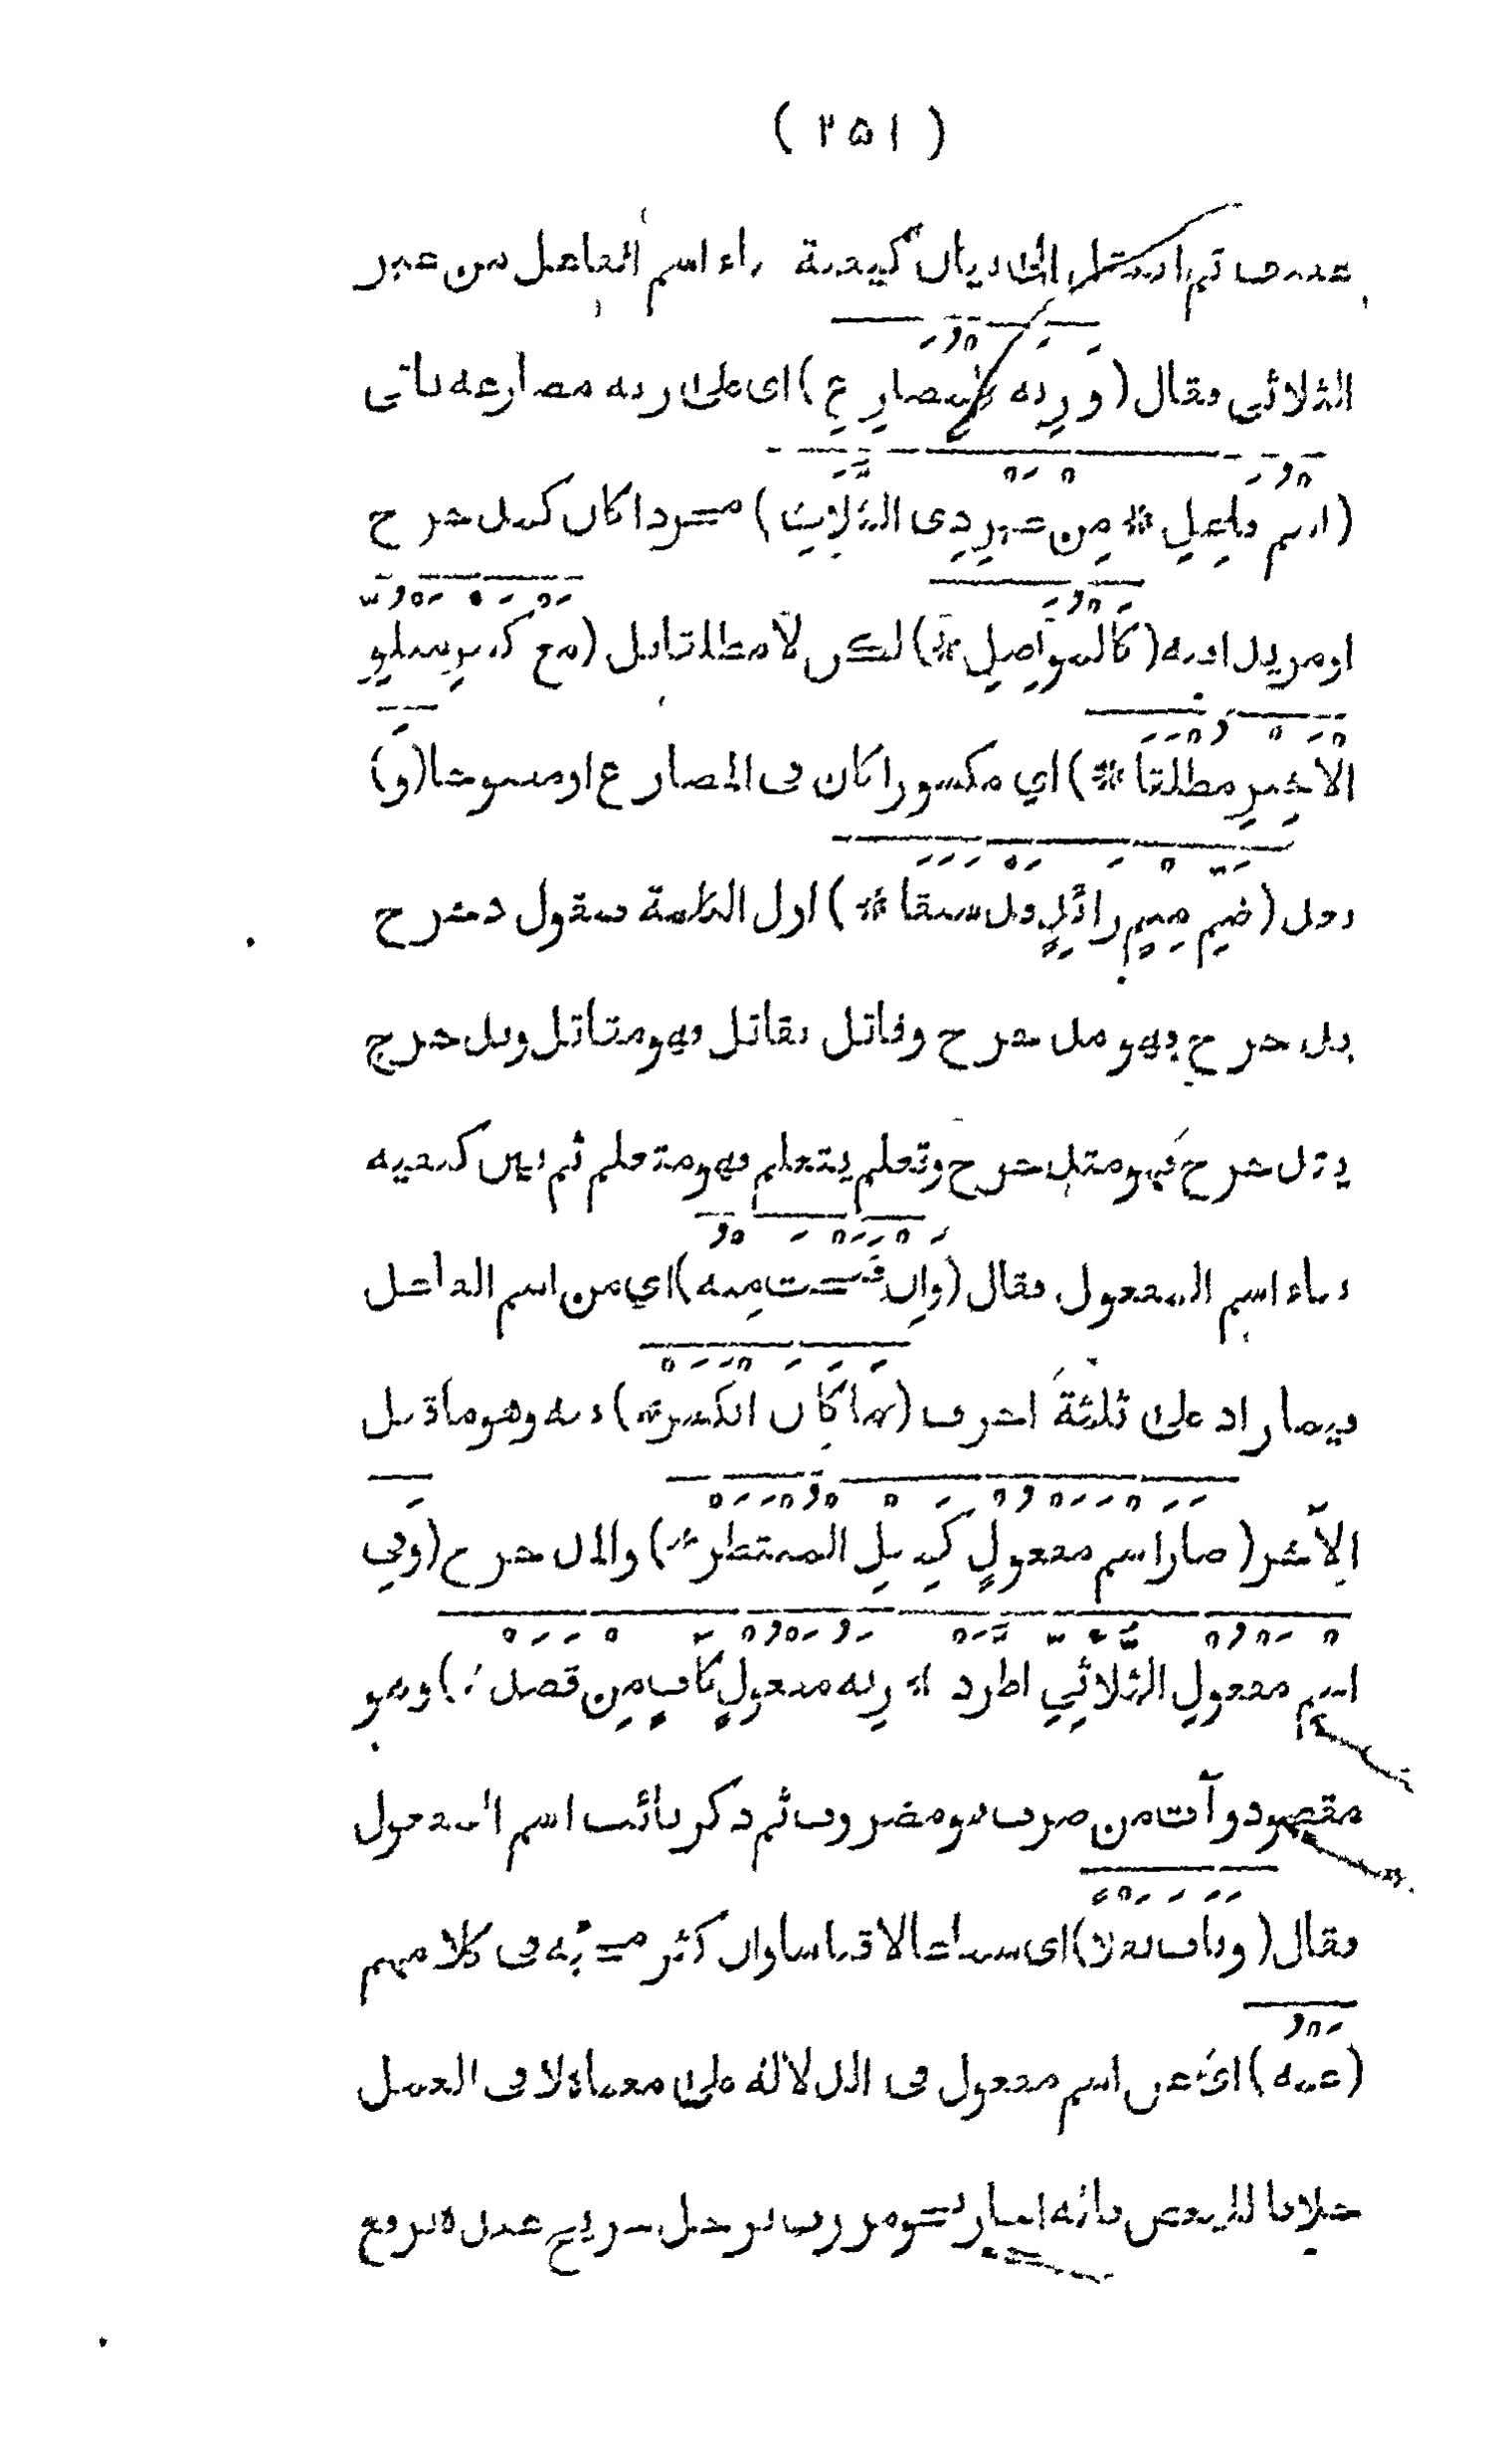 ( ٢٥١ )
ثم الى بيان كيفية بناء اسم الفاعل من غير
الثلاثى فقال (وزنه المضارع) اى على زنة مضارعه ياتى
(اسم فاعل * من غير ذى الثلاث) مجردا كان كيدحرج
او مزيدا فيه (كالمواصل *) لكن لا مطلقا بل (مع كسر متلو
الاخير مطلقا *) اي مكسورا كان فى المضارع او مفتوحا (و)
بعد (ضم ميم زائد قد سبقا *) اول الكلمة فتقول دحرج
يدحرج فهو مدحرج وقاتل يقاتل فهو مقاتل وتدحرج
يتدحرج فهو متدحرج وتعلم يتعلم فهو متعلم ثم بين كيفية
بناء اسم المفعول فقال (وان فتحت منه) اي من اسم الفاعل
فيما زاد على ثلثة احرف (ما كان انكسر *) فيه وهو ما قبل
الآخر (صار اسم مفعول كمثل المنتظر *) والمدحرج (وفي
اسم مفعول الثلاثي اطرد * زنة مفعول كآت من قصد *) وهو
مقصود وآت من ضرب هو مضروب ثم ذكر نائب اسم المفعول
فقال (وناب نقلا) اى سماعا لا قياسا وان كثر مجيئه فى كلامهم
(عنه) اى عن اسم مفعول فى الدلالة على معناه لا فى العمل
خلافا للبعض فانه اجاز نحو مررت برجل عنده فرفع